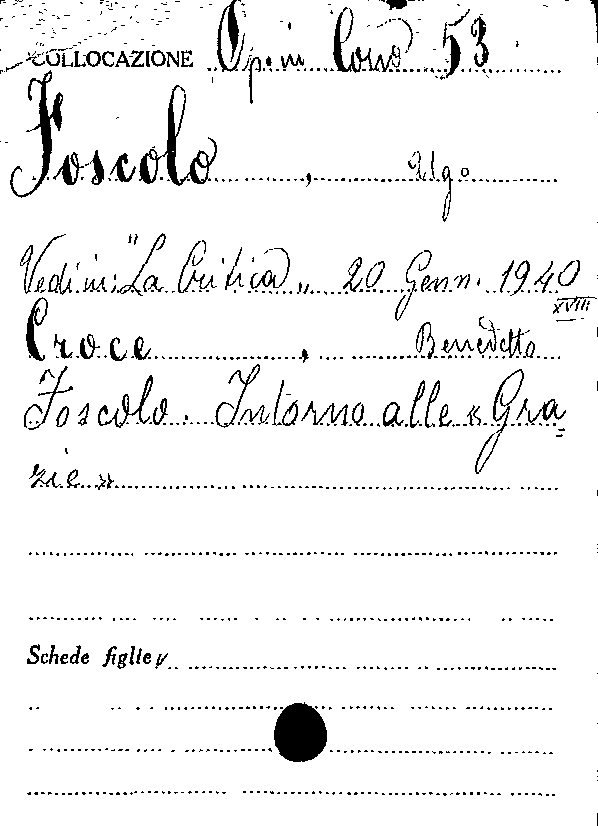 COLLOCAZIONE Op. in Cons 53
Foscolo, Ugo
Vedi in: "La Critica" 20 Genn. 1940
XVIII
Croce, Benedetto
Foscolo. Intorno alle « Gra=
zie »
Schede figlie